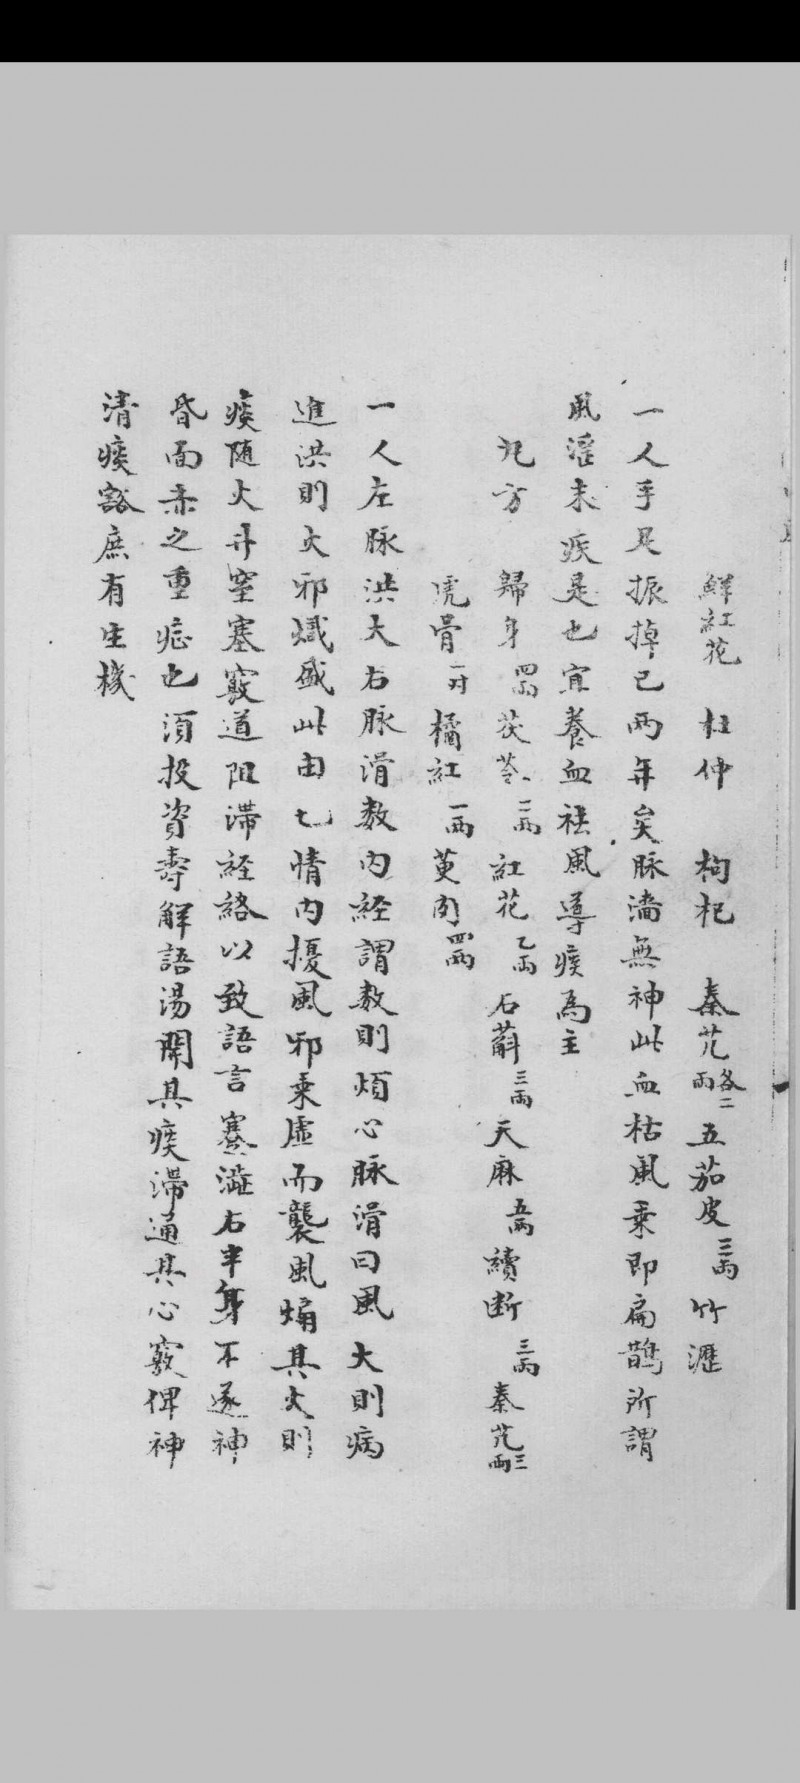 鮮紅花 杜仲 枸杞 秦艽各二兩 五茄皮三兩 竹瀝
一人手足振掉已兩年矣脉濇無神此血枯風乗即扁鵲所謂
風淫末疾是也宜養血祛風導痰為主
丸方 歸身四兩 茯苓二兩 紅花乙兩 石斛三兩 天麻五兩 續断三兩 秦艽三兩
虎骨一對 橘紅一兩 萸肉四兩
一人左脉洪大右脉滑数内經謂数則煩心脉滑曰風大則病
進洪則火邪熾盛此由七情内擾風邪乗虛而襲風煽其火則
痰随火升窒塞竅道阻滞経絡以致語言蹇澁右半身不遂神
昏面赤之重症也須投資壽解語湯開其痰滞通其心竅俾神
清痰豁庶有生機